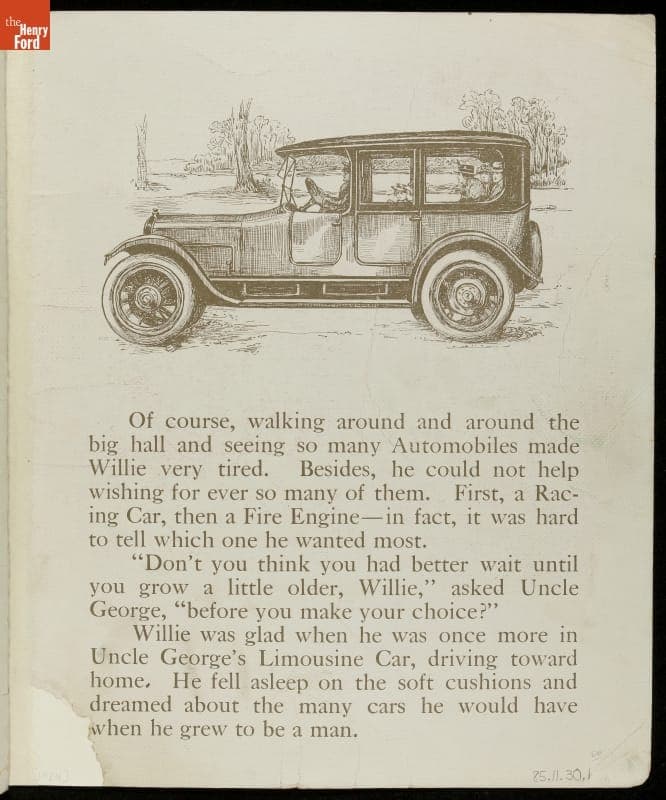 the
Henry
Ford
Of course, walking around and around the
big hall and seeing so many Automobiles made
Willie very tired. Besides, he could not help
wishing for ever so many of them. First, a Rac-
ing Car, then a Fire Engine—in fact, it was hard
to tell which one he wanted most.
"Don't you think you had better wait until
you grow a little older, Willie," asked Uncle
George, "before you make your choice?"
Willie was glad when he was once more in
Uncle George's Limousine Car, driving toward
home. He fell asleep on the soft cushions and
dreamed about the many cars he would have
when he grew to be a man.
85.11.30.1